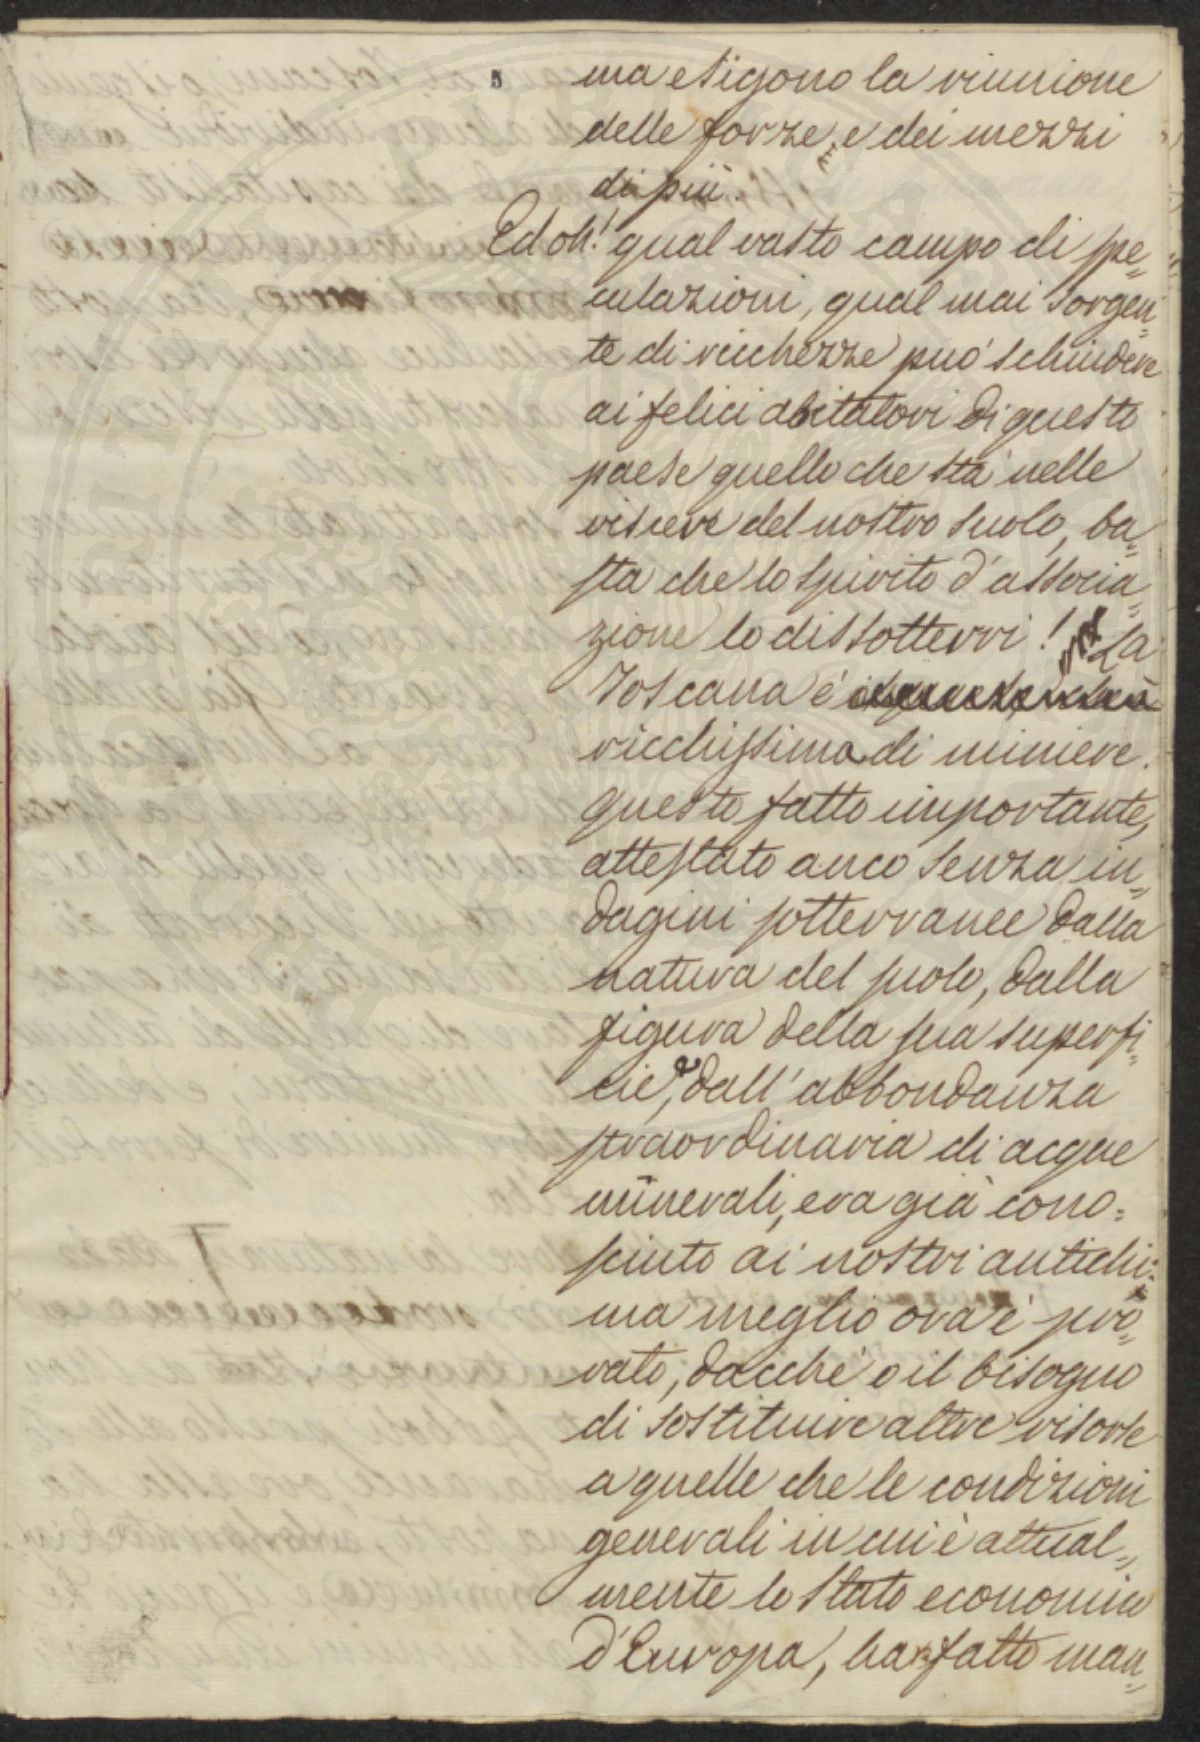 5
ma esigono la riunione
delle forze, e dei mezzi
di più.
Ed oh! qual vasto campo di spe„
culazioni, qual mai sorgen„
te di ricchezze può schiudere
ai felici abitatori di questo
paese quello che sta nelle
viscere del nostro suolo, ba„
sta che lo spirito d'associa„
zione lo dissotterri! La
Toscana è
ricchissima di miniere.
questo fatto importante,
attestato anco senza in„
dagini sotterranee dalla
natura del suolo, dalla
figura della sua superfi„
cie, e dall'abbondanza
straordinaria di acque
minerali, era già cono=
sciuto ai nostri antichi:
ma meglio ora è pro„
vato, dacchè o il bisogno
di sostituire altre risorse
a quelle che le condizioni
generali in cui è attual„
mente lo Stato economico
d'Europa, ha fatto man„